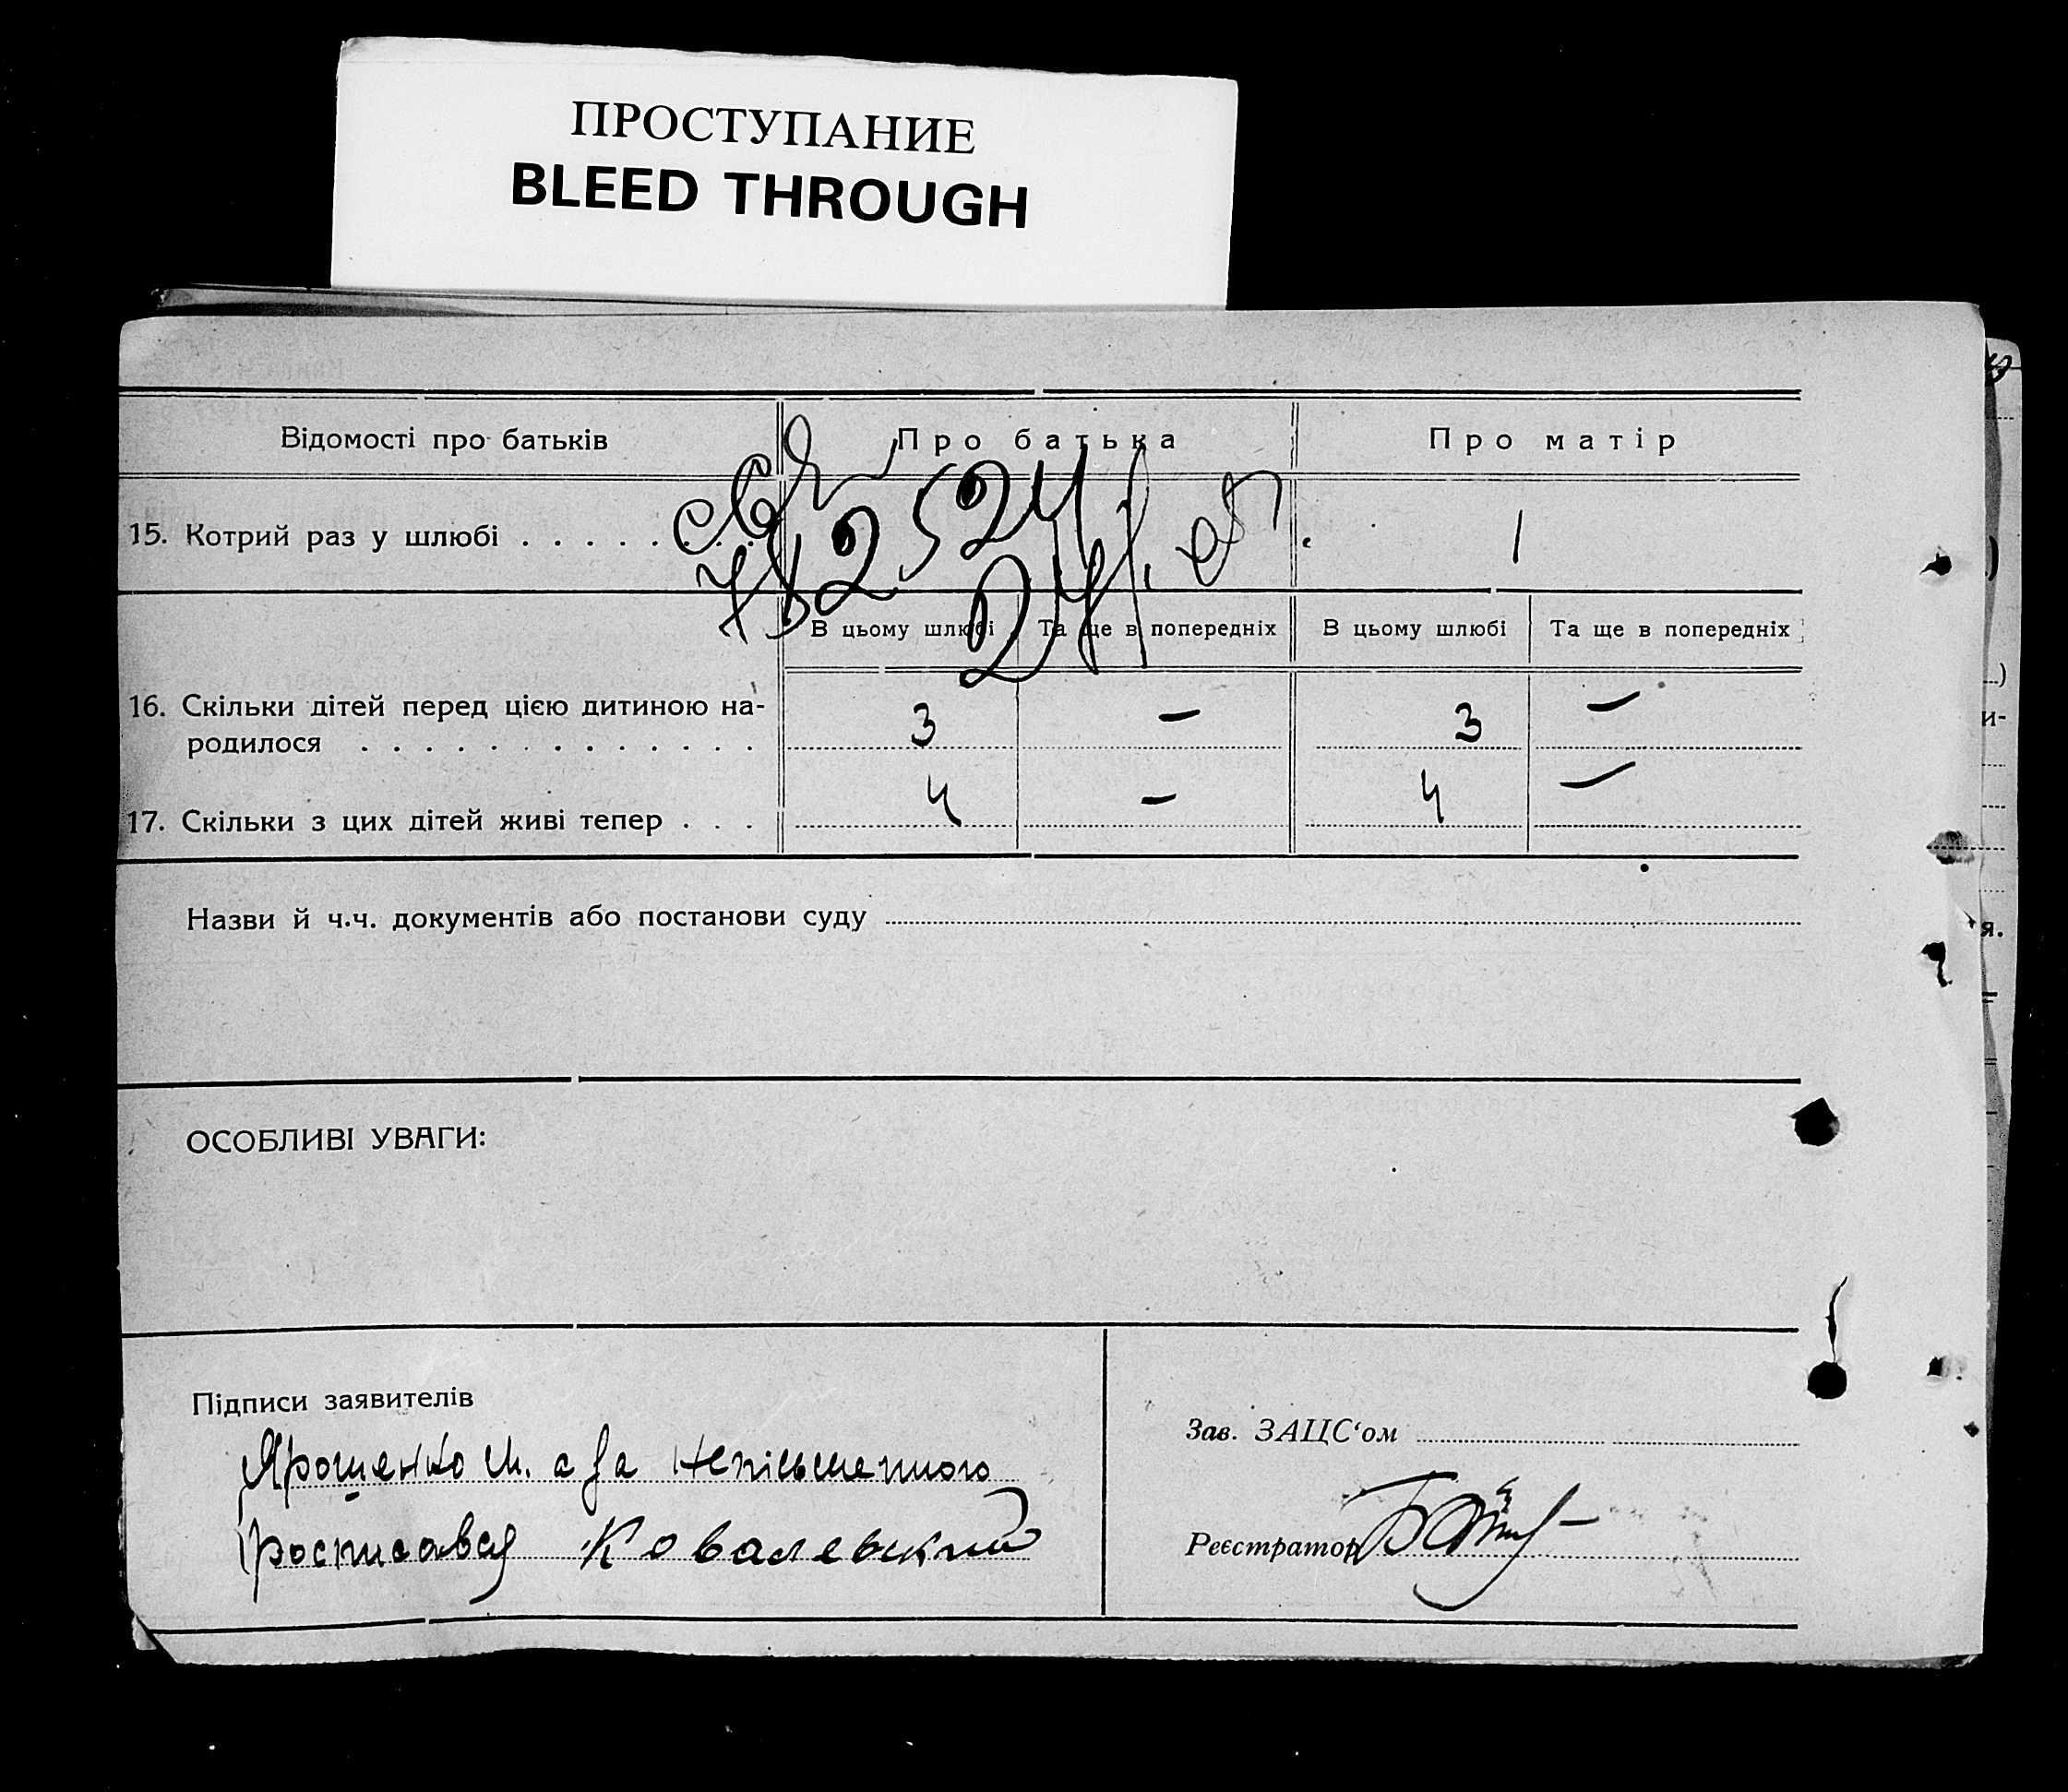 ПРОСТУПАНИЕ
BLEED THROUGH
Відомості про батьків Про батька Про матір
15. Котрий раз у шлюбі . . . . . . 1
В цьому шлюбі Та ще в попередніх В цьому шлюбі Та ще в попередніх
16. Скільки дітей перед цією дитиною на-
родилося . . . . . . . . . . . . . 3 — 3 —
17. Скільки з цих дітей живі тепер . . . 4 — 4 —
Назви й ч.ч. документів або постанови суду
ОСОБЛИВІ УВАГИ:
Підписи заявителів
Ярошенко М. а за непісьменного
росписався Ковалевский
Зав. ЗАЦС‘ом
Реєстратор